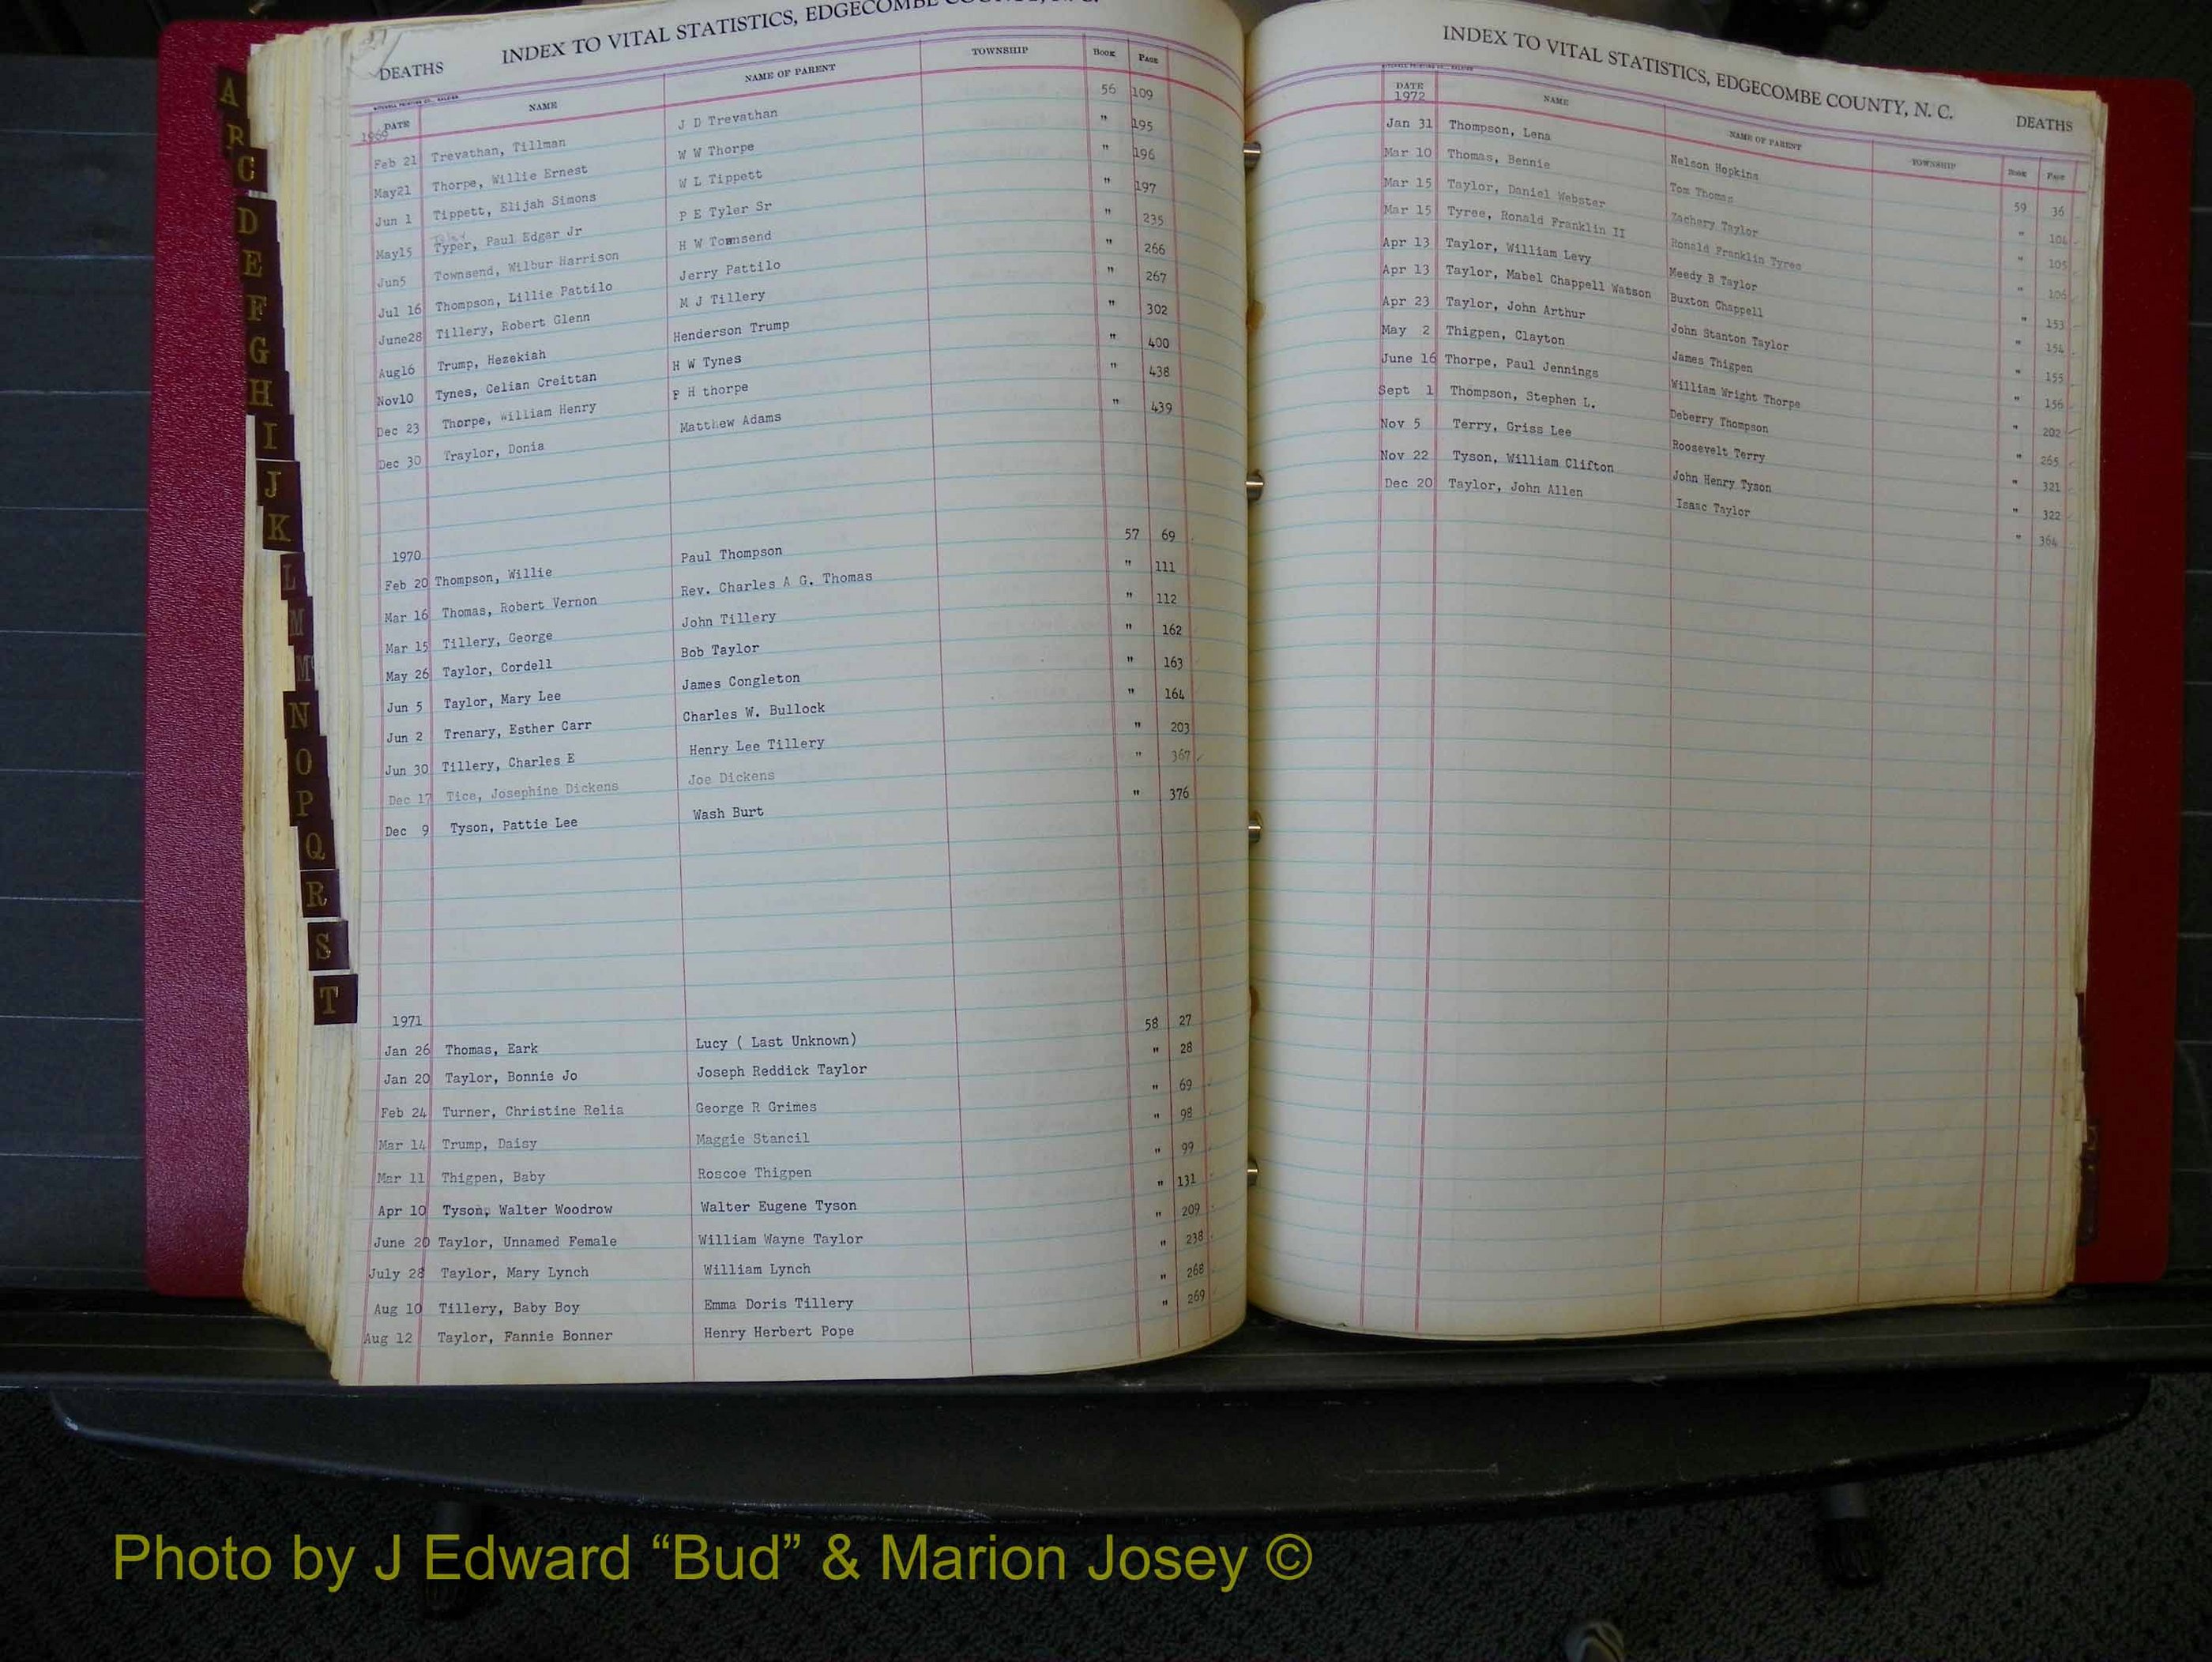 DEATHS INDEX TO VITAL STATISTICS, EDGECOMBE COUNTY, N. C.
DATE NAME NAME OF PARENT TOWNSHIP BOOK PAGE
1969
Feb 21 Trevathan, Tillman J D Trevathan 56 109
May21 Thorpe, Willie Ernest W W Thorpe " 195
Jun 1 Tippett, Elijah Simons W L Tippett " 196
May15 Typer, Paul Edgar Jr P E Tyler Sr " 197
Jun5 Townsend, Wilbur Harrison H W Townsend " 235
Jul 16 Thompson, Lillie Pattilo Jerry Pattilo " 266
June28 Tillery, Robert Glenn M J Tillery " 267
Aug16 Trump, Hezekiah Henderson Trump " 302
Nov10 Tynes, Celian Creittan H W Tynes " 400
Dec 23 Thorpe, William Henry P H thorpe " 438
Dec 30 Traylor, Donia Matthew Adams " 439
1970
Feb 20 Thompson, Willie Paul Thompson 57 69
Mar 16 Thomas, Robert Vernon Rev. Charles A G. Thomas " 111
Mar 15 Tillery, George John Tillery " 112
May 26 Taylor, Cordell Bob Taylor " 162
Jun 5 Taylor, Mary Lee James Congleton " 163
Jun 2 Trenary, Esther Carr Charles W. Bullock " 164
Jun 30 Tillery, Charles E Henry Lee Tillery " 203
Dec 17 Tice, Josephine Dickens Joe Dickens " 367
Dec 9 Tyson, Pattie Lee Wash Burt " 376
1971
Jan 26 Thomas, Eark Lucy ( Last Unknown) 58 27
Jan 20 Taylor, Bonnie Jo Joseph Reddick Taylor " 28
Feb 24 Turner, Christine Relia George R Grimes " 69
Mar 14 Trump, Daisy Maggie Stancil " 98
Mar 11 Thigpen, Baby Roscoe Thigpen " 99
Apr 10 Tyson, Walter Woodrow Walter Eugene Tyson " 131
June 20 Taylor, Unnamed Female William Wayne Taylor " 209
July 28 Taylor, Mary Lynch William Lynch " 238
Aug 10 Tillery, Baby Boy Emma Doris Tillery " 268
Aug 12 Taylor, Fannie Bonner Henry Herbert Pope " 269
INDEX TO VITAL STATISTICS, EDGECOMBE COUNTY, N. C. DEATHS
DATE NAME NAME OF PARENT TOWNSHIP BOOK PAGE
1972
Jan 31 Thompson, Lena Nelson Hopkins 59 36
Mar 10 Thomas, Bennie Tom Thomas " 104
Mar 15 Taylor, Daniel Webster Zachery Taylor " 105
Mar 15 Tyree, Ronald Franklin II Ronald Franklin Tyree " 106
Apr 13 Taylor, William Levy Meedy B Taylor " 153
Apr 13 Taylor, Mabel Chappell Watson Buxton Chappell " 154
Apr 23 Taylor, John Arthur John Stanton Taylor " 155
May 2 Thigpen, Clayton James Thigpen " 156
June 16 Thorpe, Paul Jennings William Wright Thorpe " 202
Sept 1 Thompson, Stephen L. Deberry Thompson " 265
Nov 5 Terry, Griss Lee Roosevelt Terry " 321
Nov 22 Tyson, William Clifton John Henry Tyson " 322
Dec 20 Taylor, John Allen Isaac Taylor " 364
A
B
C
D
E
F
G
H
I
J
K
L
M
Mc
N
O
P
Q
R
S
T
Photo by J Edward “Bud” & Marion Josey ©